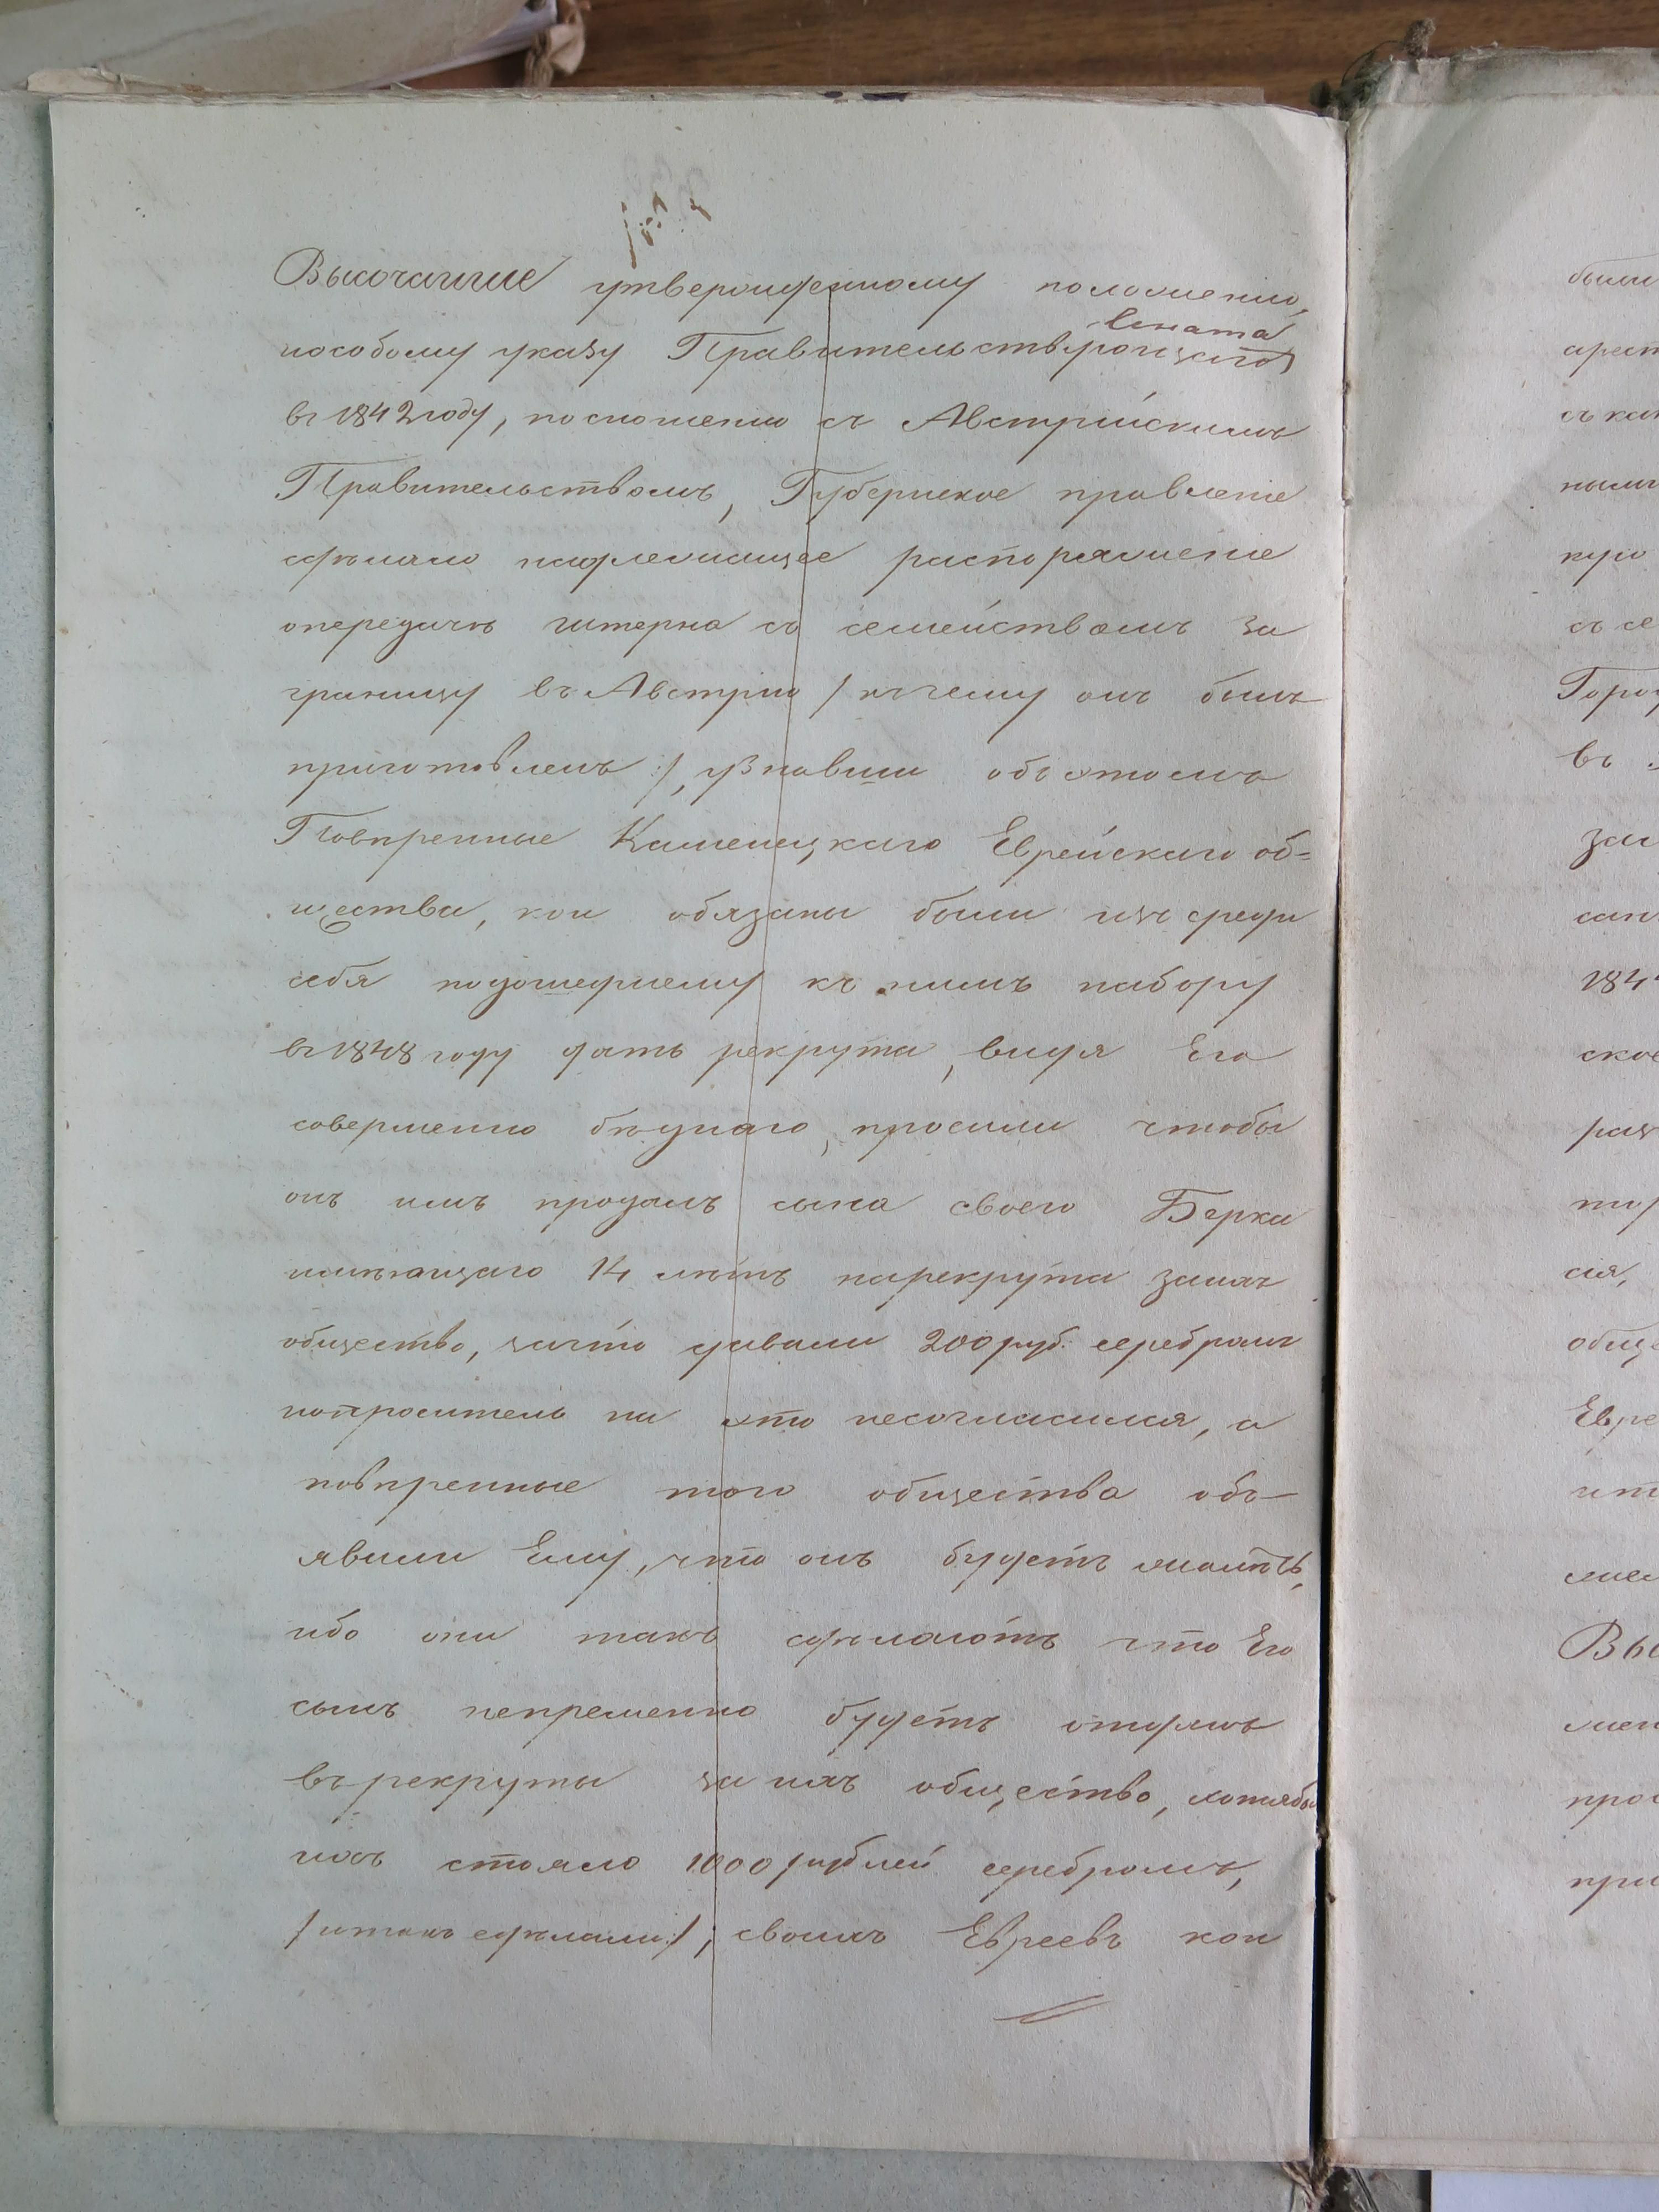 Высочайше утвержденному положенію,
Сената
иособому указу Правительствующаго
въ 1842 году, посношенію съ Австрійскимъ
Правительствомъ, Губернское правленіе
сдѣлало надлежащее распоряженіе
опередачѣ Штерна съ семействомъ за
границу въ Австрію /: кчему онъ былъ
приготовленъ :/, узнавши объ этомъ
Повѣренные Каменецкаго Еврейскаго об=
щества, кои обязаны были изъ среди
себя подошедшему къ нимъ набору
въ 1848 году дать рекрута, видя Его
совершенно бѣднаго, просили чтобы
онъ имъ продалъ сына своего Берка
имѣющаго 14 лѣтъ нарекрута заихъ
общество, зачто давали 200 руб. серебромъ
нопроситель на это несогласился, а
повѣренные того общества объ-
явили Ему, что онъ будетъ жалѣть,
ибо они такъ сдѣлаютъ что Его
сынъ непременно будетъ отданъ
въ рекруты за ихъ общество, хотябы
ихъ стояло 1000 рублей серебромъ,
/итакъ сдѣлали:/; своихъ Евреевъ кои
были
съ
съ се
въ
ское
Евре